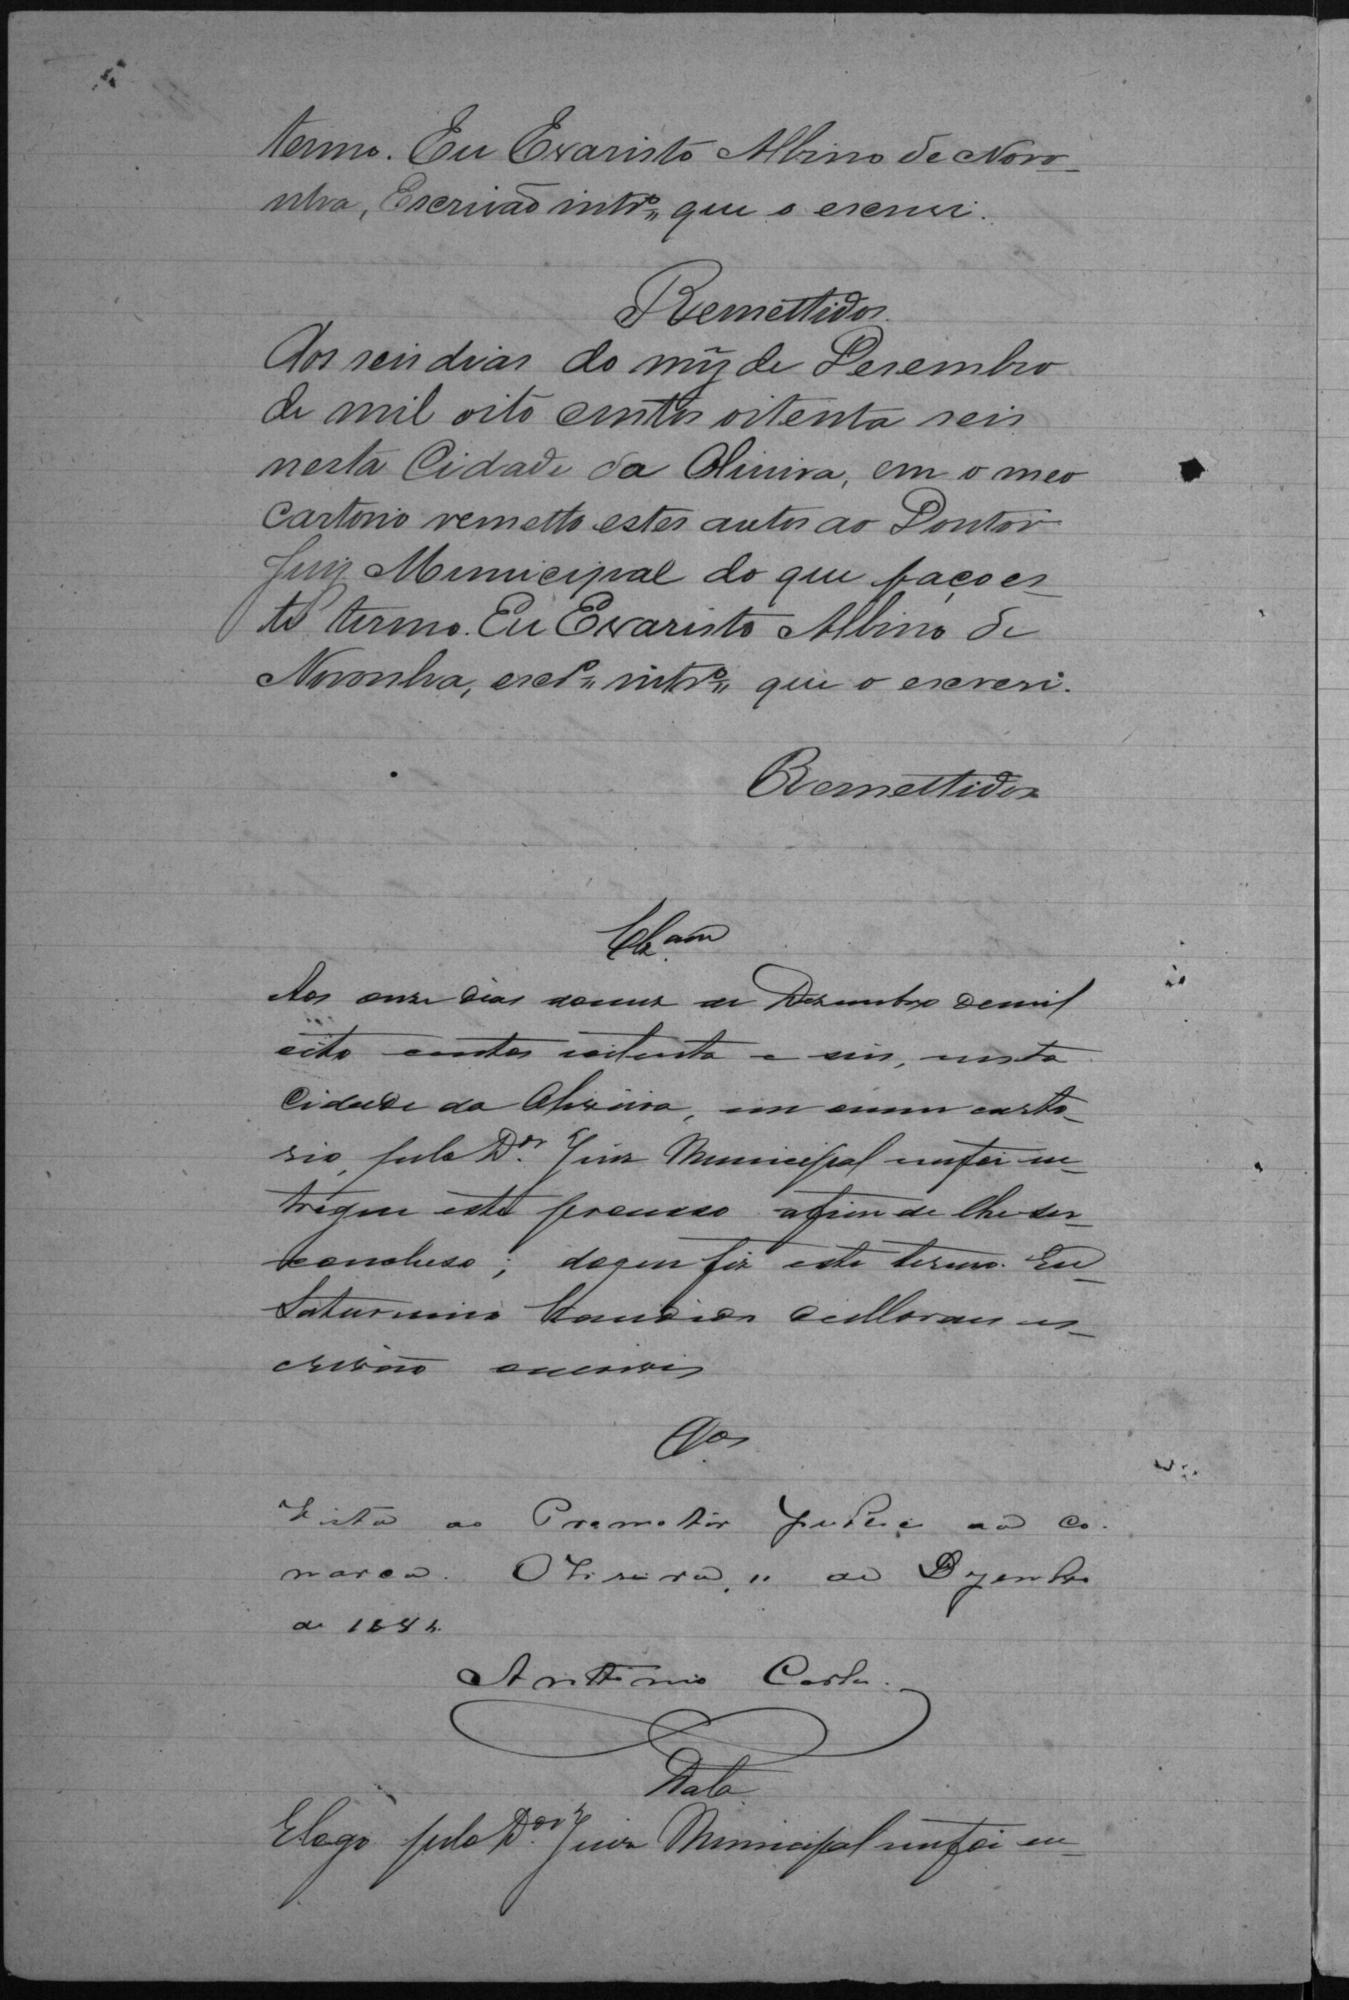 termo. Eu Evaristo Albino de Noro-
nha, Escrivão intr.º que o escrevi.
Remettidos
Aos seis dias do mez de Desembro
de mil oito centos oitenta seis
nesta Cidade da Oliveira, em o meo
Cartorio remetto estes autos ao Doutor
Juiz Municipal do que faço es-
te termo. Eu Evaristo Albino de
Noronha, escr.º intr.º que o escrevi.
Remettidos
Aos onze dias do mez de Dezembro de mil
oito centos oitenta e seis, nesta
Cidade da Oliveira, em o meu carto-
rio, pelo D.or Juiz Municipal me foi en-
tregue este processo afim de lhe ser
concluso; do que fiz este termo. Eu
Saturnino Candido de Moraes es-
crivão escrevi
Vista ao Promotor Publico da Co-
marca. Oliveira, 11 de Dezembro
de 188
Antonio Costa.
Data
E logo pelo D.or Juiz Municipal me foi en-